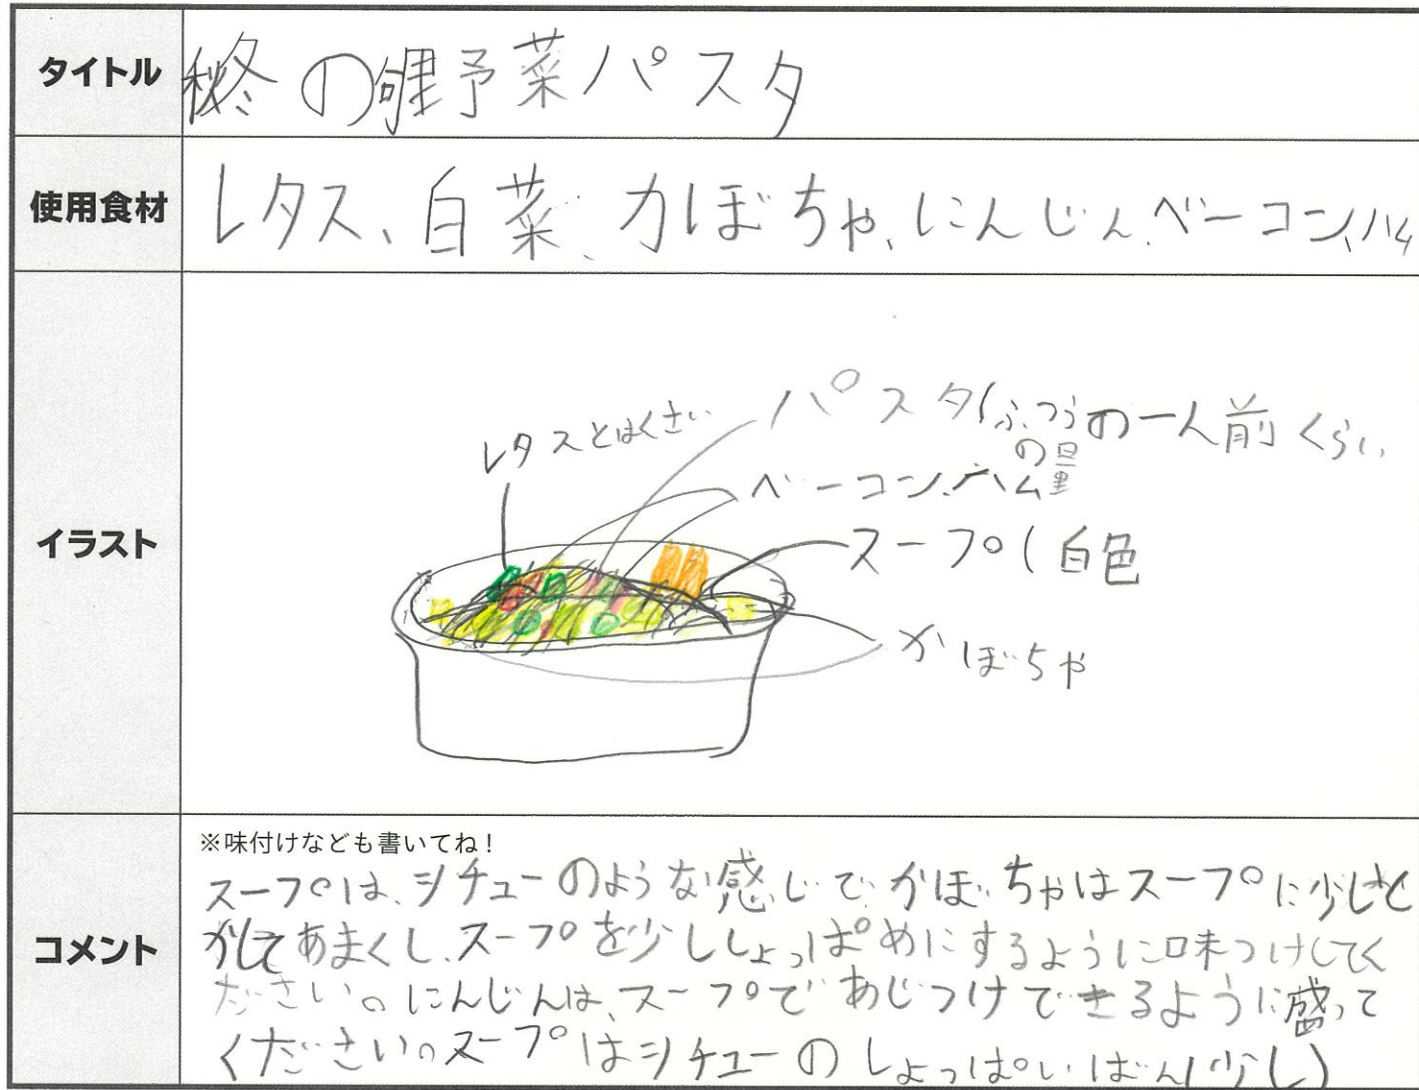 タイトル
秋冬の野菜パスタ
使用食材
レタス、白菜、かぼちゃ、にんじん、ベーコン、ハム
イラスト
レタスとはくさい
パスタ(ふつうの一人前くらい
の量
ベーコン、ハム
スープ(白色
かぼちゃ
コメント
※味付けなども書いてね!
スープは、シチューのような感じで、かぼちゃはスープに少しと
かしてあまくし、スープを少ししょっぱめにするように味つけしてく
ださい。にんじんは、スープであじつけできるように盛って
ください。スープはシチューのしょっぱいばん(少し)